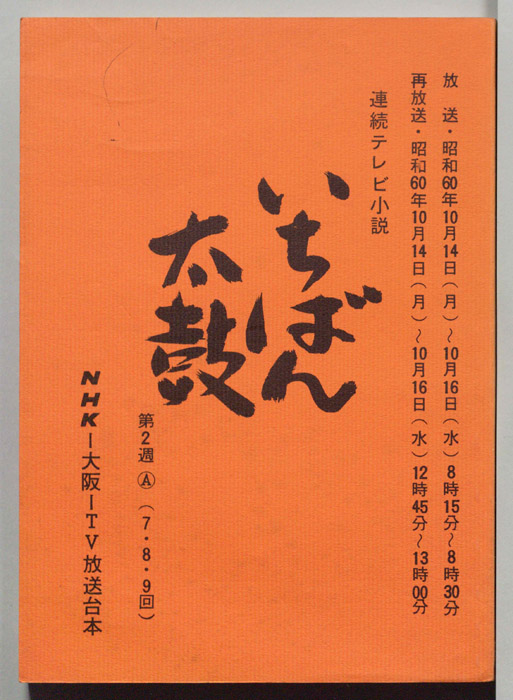 放送・昭和60年10月14日(月)〜10月16日(水)8時15分〜8時30分
再放送・昭和60年10月14日(月)〜10月16日(水)12時45分〜13時00分
連続テレビ小説
いちばん
太鼓
第2週Ⓐ(7・8・9回)
NHK—大阪—TV放送台本